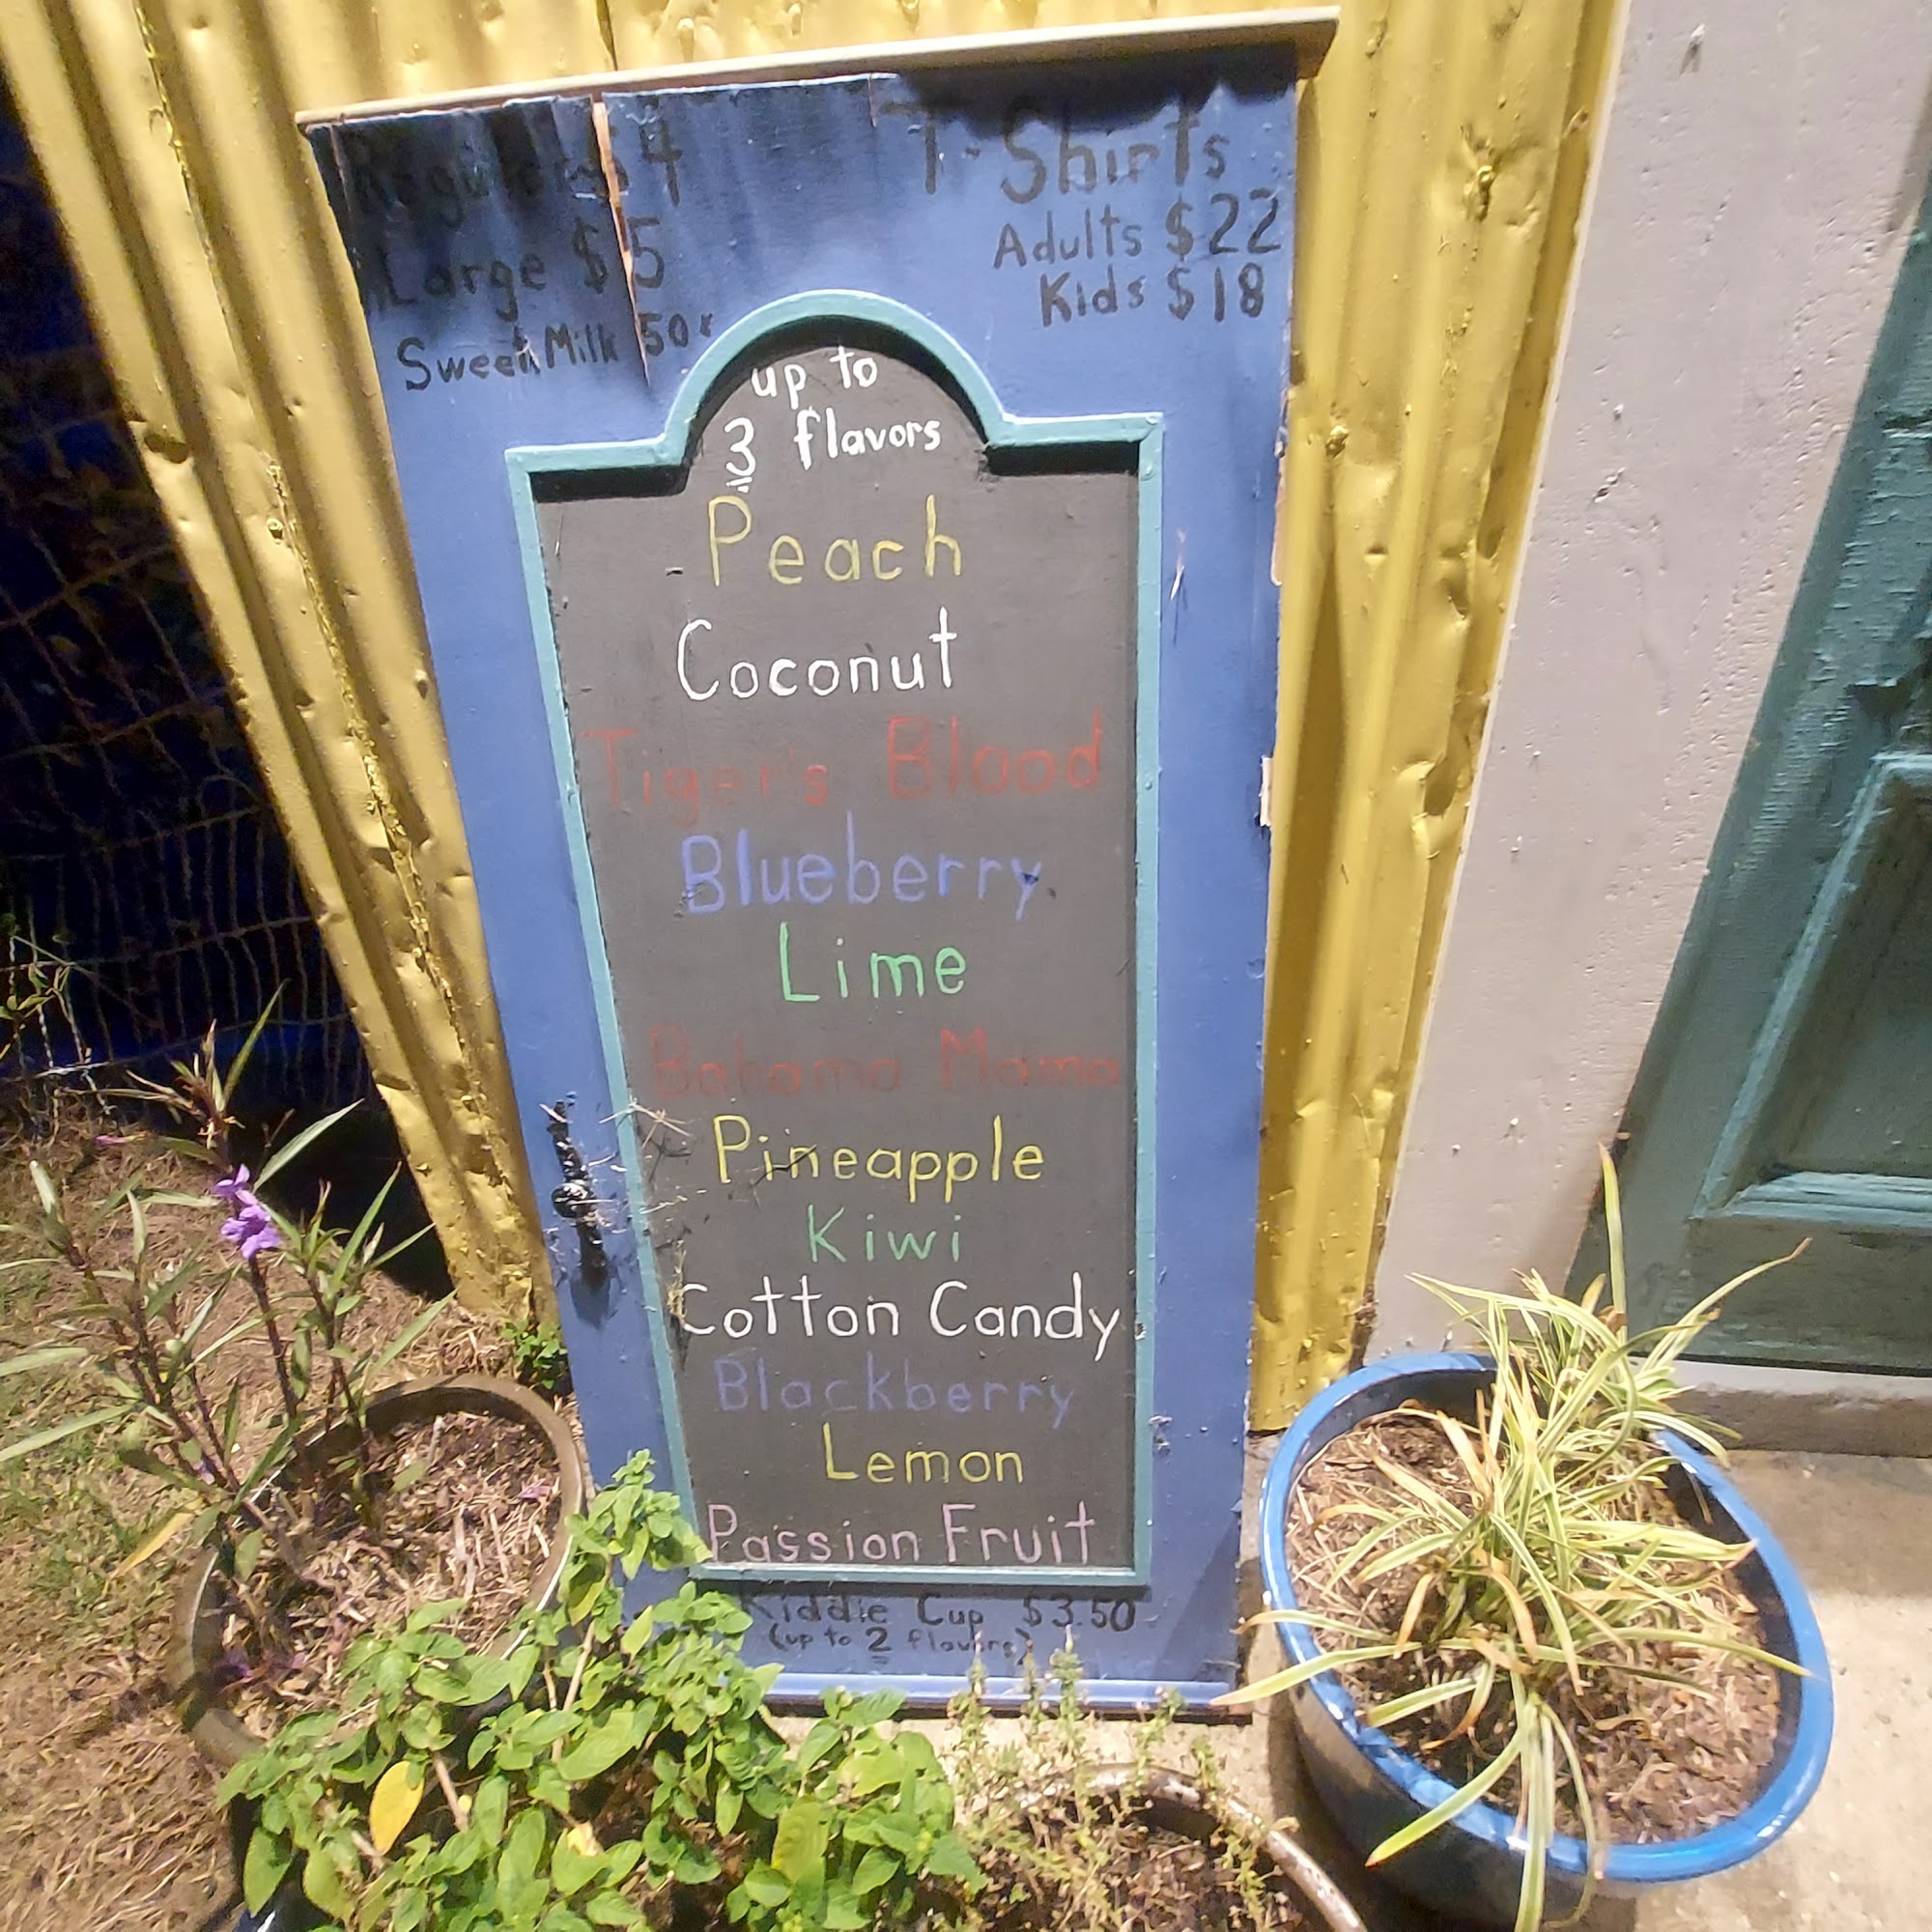 Regular $4
Large $5
Sweet Milk 50¢
T-Shirts
Adults $22
Kids $18
up to
3 flavors
Peach
Coconut
Tiger's Blood
Blueberry
Lime
Bahama Mama
Pineapple
Kiwi
Cotton Candy
Blackberry
Lemon
Passion Fruit
Kiddie Cup $3.50
(up to 2 flavors)